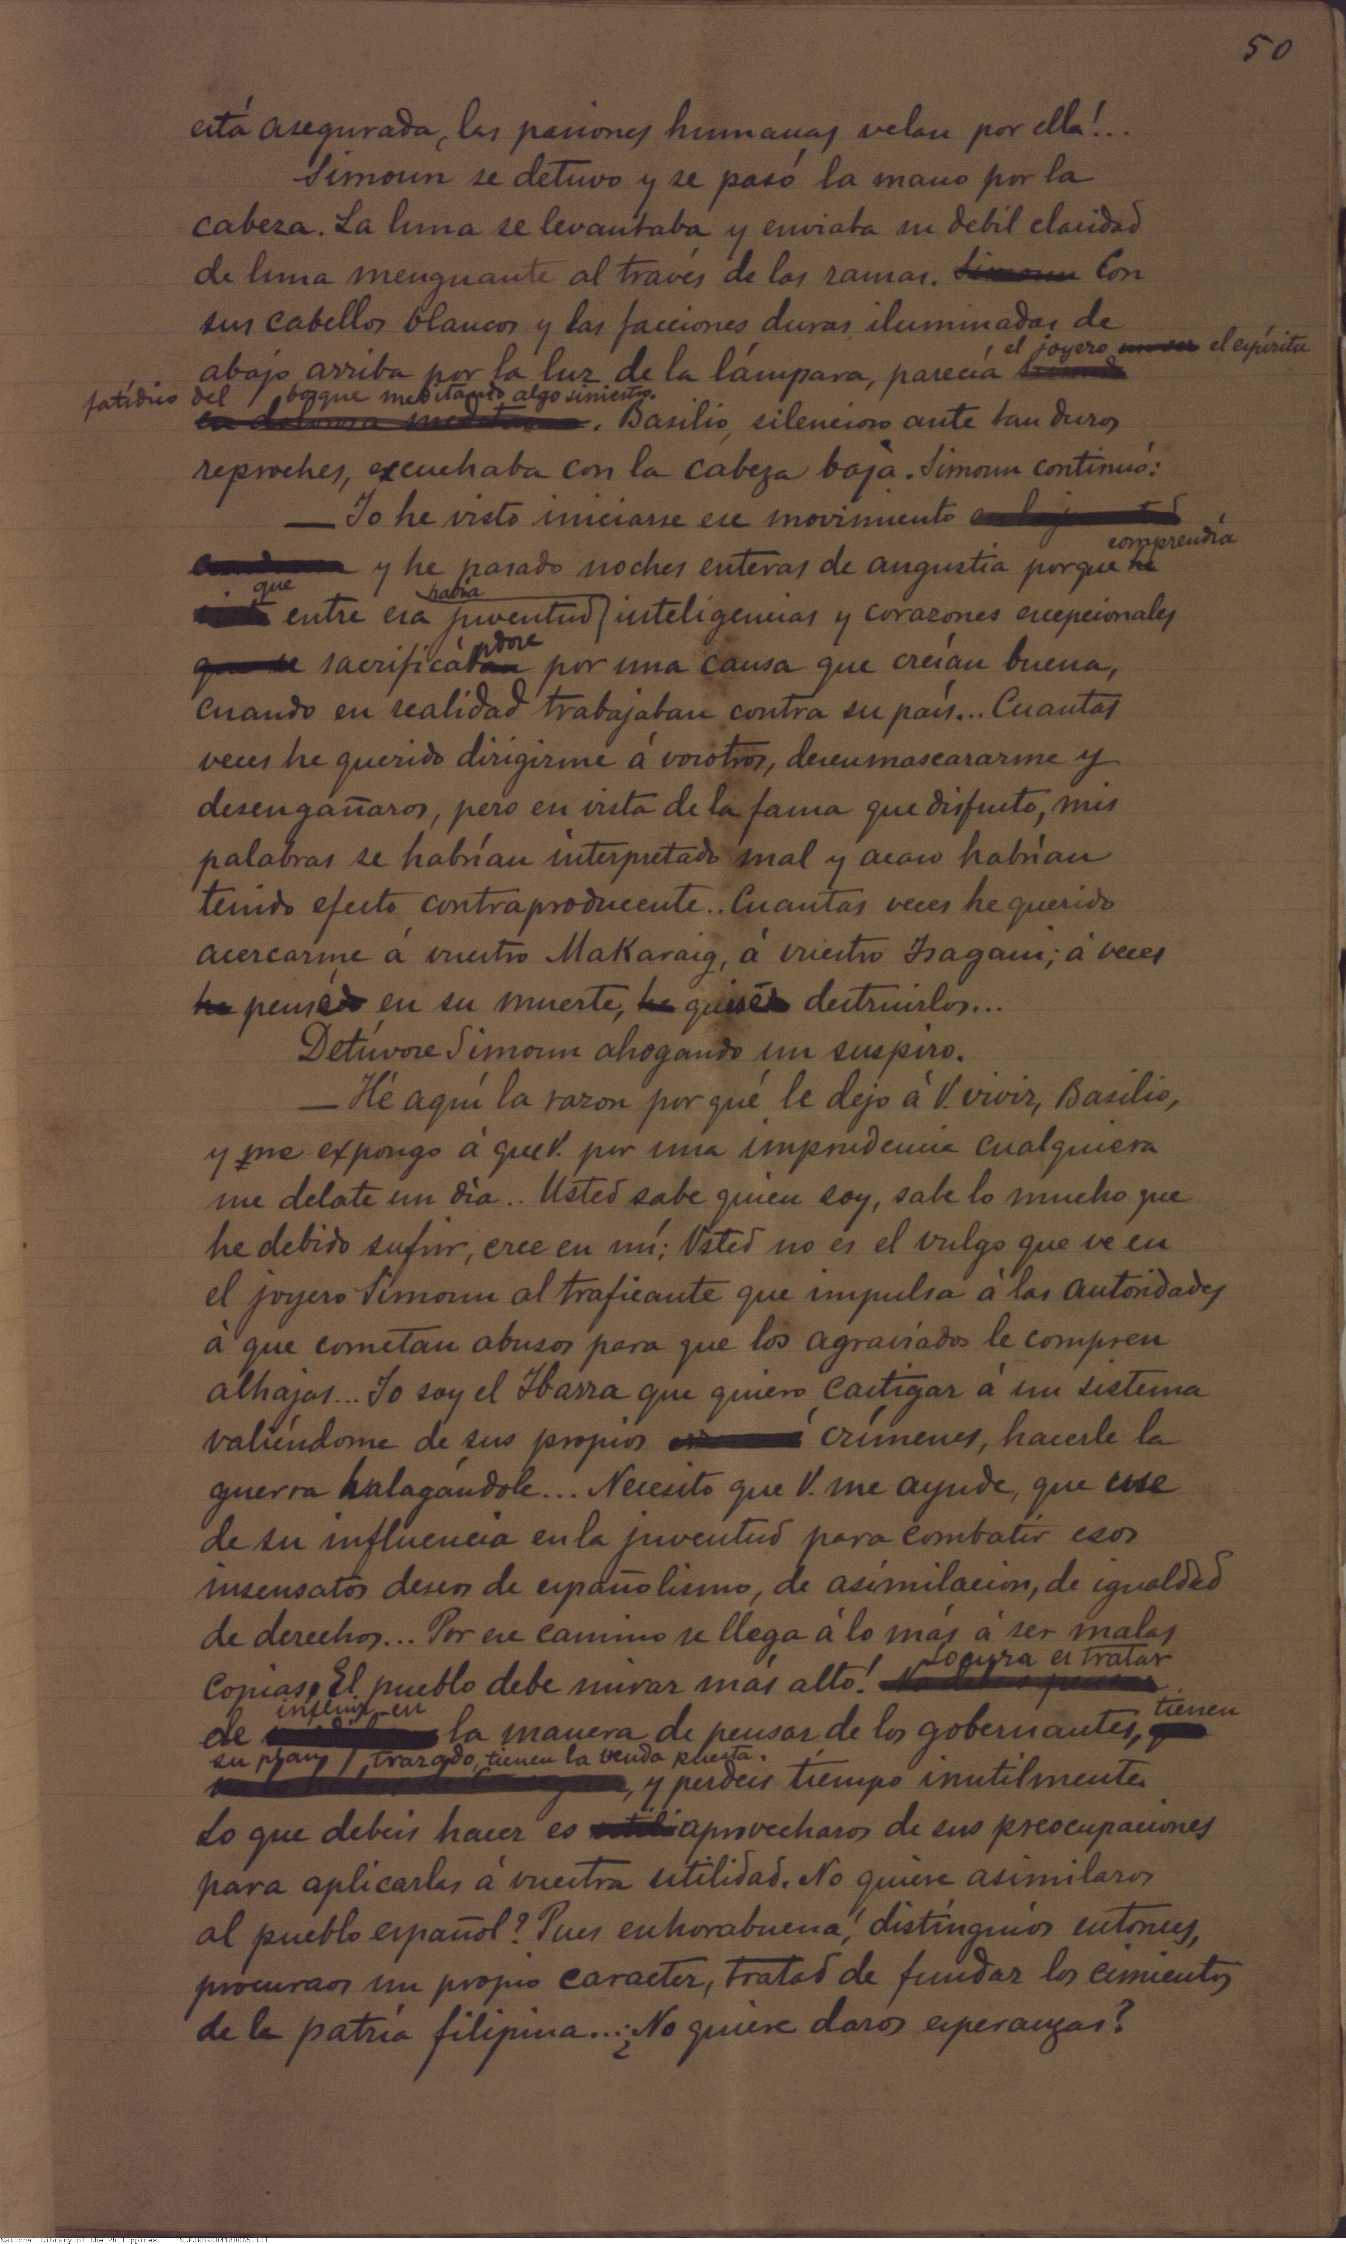 50
está asegurada, las pasiones humanas velan por ella!...
Simoun se detuvo y se pasó la mano por la
cabeza. La luna se levantaba y enviaba su debil claridad
de luna menguante al través de las ramas. Simoun Con
sus cabellos blancos y las facciones duras, iluminadas de
el joyero un ser el espíritu
abajo arriba por la luz de la lámpara, parecía
fatídico del bosque meditando algo siniestro.
. Basilio, silencioso ante tan duros
reproches, escuchaba con la cabeza baja. Simoun continuó:
— Yo he visto iniciarse ese movimiento
comprendía
y he pasado noches enteras de angustia porque he
que había
entre esa juventud inteligencias y corazones escepcionales
ndose
que se sacrificában por una causa que creían buena,
cuando en realidad trabajaban contra su país... Cuantas
veces he querido dirigirme á vosotros, desenmascararme y
desengañaros, pero en vista de la fama que disfruto, mis
palabras se habrían interpretado mal y acaso habrían
tenido efecto contraproducente.. Cuantas veces he querido
acercarme á vuestro Makaraig, á vuestro Isagani; á veces
he pensé en su muerte, he quise destruirlos...
Detúvose Simoun ahogando un suspiro.
— Hé aquí la razon por qué le dejo á V. vivir, Basilio,
y me expongo á que V. por una imprudencia cualquiera
me delate un dia.. Usted sabe quien soy, sabe lo mucho que
he debido sufrir, cree en mí; Usted no es el vulgo que ve en
el joyero Simoun al traficante que impulsa á las autoridades
á que cometan abusos para que los agraviados le compren
alhajas... Yo soy el Ibarra que quiero castigar á un sistema
valiéndome de sus propios crímenes, hacerle la
guerra halagándole... Necesito que V. me ayude, que use
de su influencia en la juventud para combatir esos
insensatos deseos de españolismo, de asimilacion, de igualdad
de derechos... Por ese camino se llega á lo más á ser malas
Locura es tratar
copias, El pueblo debe mirar más alto! No debeis pensar
influir en tienen
de la manera de pensar de los gobernantes,
su plan trazado, tienen la venda puesta.
, y perdeis tiempo inutilmente.
Lo que debeis hacer es aprovecharos de sus preocupaciones
para aplicarlas á vuestra utilidad. No quiere asimilaros
al pueblo español? Pues enhorabuena! distinguíos entonces,
procuraos un propio caracter, tratad de fundar los cimientos
de la patria filipina... ¿No quiere daros esperanzas?